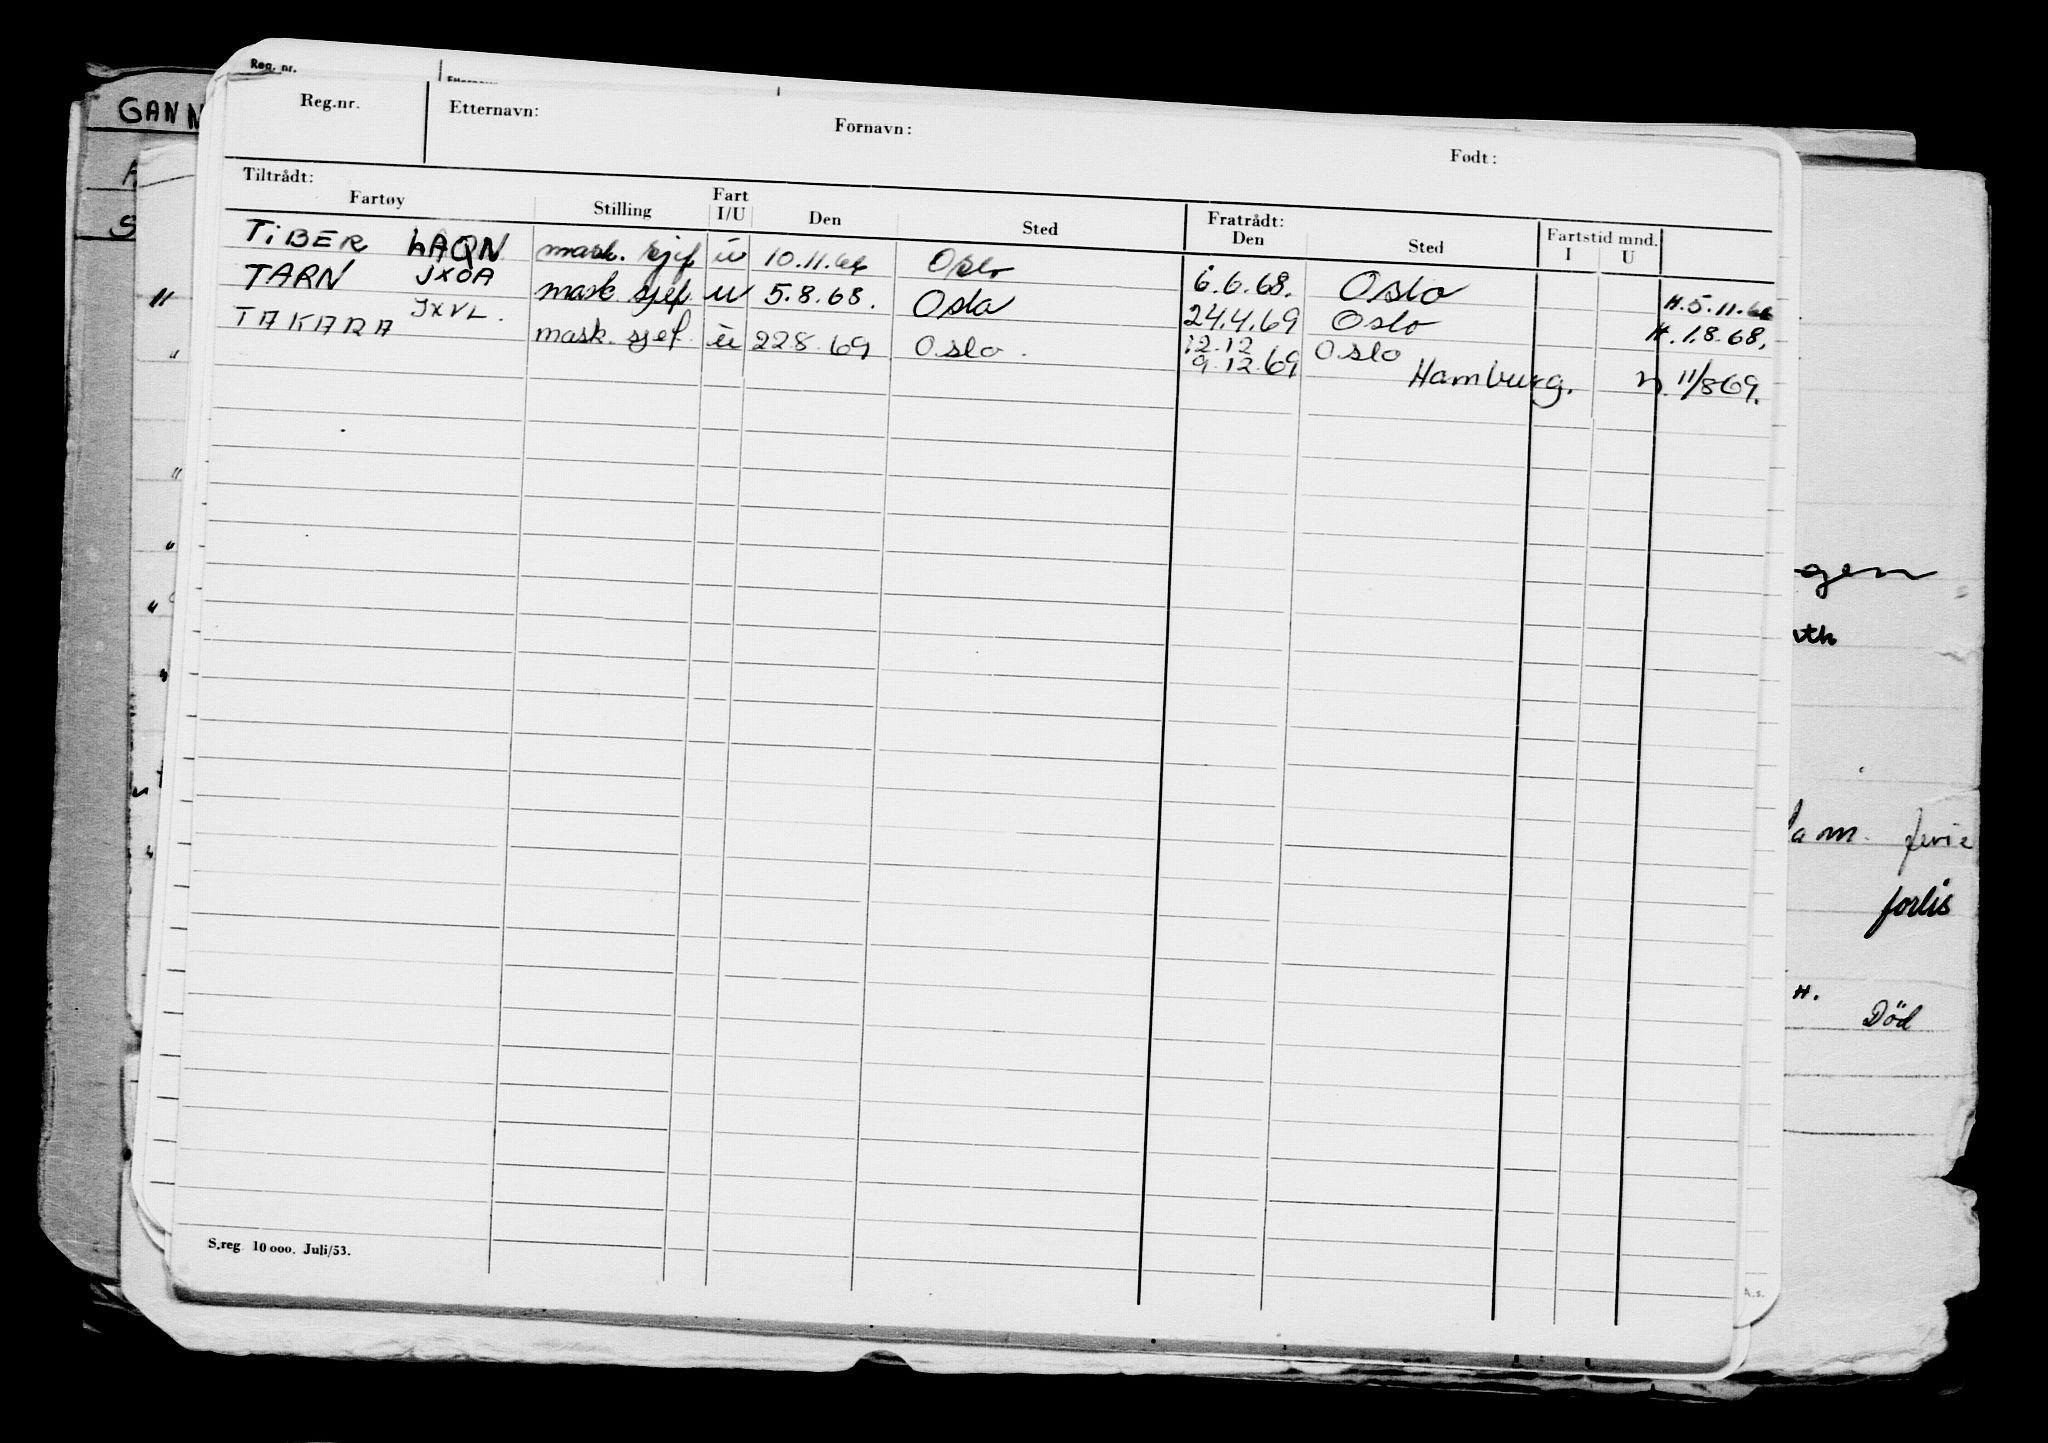 Reg. nr.
GANN
Reg.nr. Etternavn: Fornavn: Født:
Tiltrådt: Fratrådt:
Fartøy Stilling Fart I/U Den Sted Den Sted Fartstid mnd. I U
TiBER LAQN mask. sjef u 10.11.66 Oslo 6.6.68. Oslo H.5.11.66
TARN JXOA mask sjef u 5.8.68. Oslo 24.4.69 Oslo H.1.8.68.
TAKARA JXVL. mask. sjef. u 228.69 Oslo. 12.12 Oslo
9.12.69 Hamburg. 11/869.
gen
forlis
H. Död
S.reg. 10 000. Juli/53.
A.s.